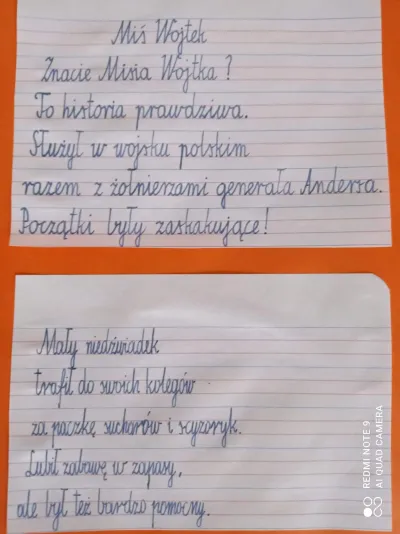 Miś Wojtek
Znacie Misia Wojtka?
To historia prawdziwa.
Służył w wojsku polskim
razem z żołnierzami generała Andersa.
Początki były zaskakujące!
Mały niedźwiadek
trafił do swoich kolegów
za paczkę sucharów i scyzoryk.
Lubił zabawę w zapasy,
ale był też bardzo pomocny.
REDMI NOTE 9
AI QUAD CAMERA